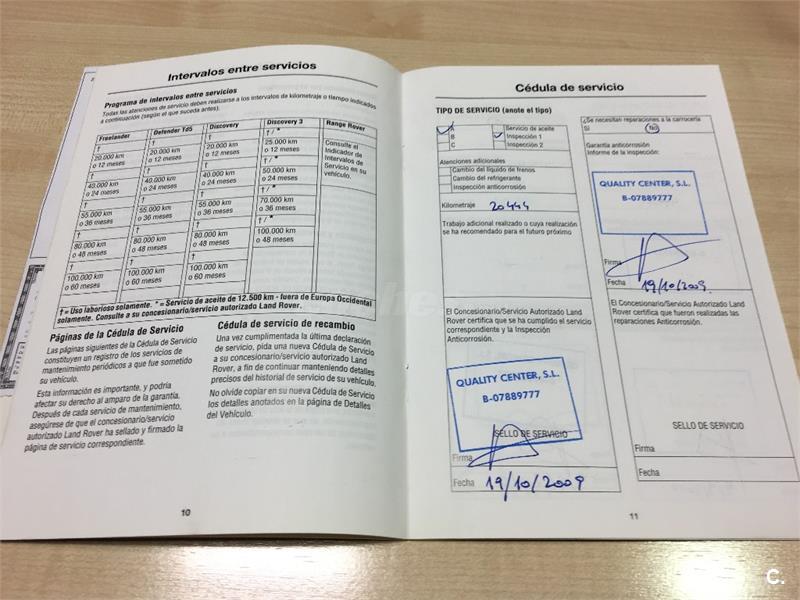 Intervalos entre servicios
Programa de intervalos entre servicios
Todas las atenciones de servicio deben realizarse a los intervalos de kilometraje o tiempo indicados
a continuación (según el que suceda antes).
Freelander Defender Td5 Discovery Discovery 3 Range Rover
† † † † / *
20.000 km 20.000 km 20.000 km 25.000 km
o 12 meses o 12 meses o 12 meses o 12 meses
† † † † / *
40.000 km 40.000 km 40.000 km 50.000 km
o 24 meses o 24 meses o 24 meses o 24 meses
† † † † / *
55.000 km 55.000 km 55.000 km 70.000 km
o 36 meses o 36 meses o 36 meses o 36 meses
† † † † / *
80.000 km 80.000 km 80.000 km 100.000 km
o 48 meses o 48 meses o 48 meses o 48 meses
† † †
100.000 km 100.000 km 100.000 km
o 60 meses o 60 meses o 60 meses
Consulte el
Indicador de
Intervalos de
Servicio en su
vehículo.
† = Uso laborioso solamente. * = Servicio de aceite de 12.500 km - fuera de Europa Occidental
solamente. Consulte a su concesionario/servicio autorizado Land Rover.
Páginas de la Cédula de Servicio
Las páginas siguientes de la Cédula de Servicio
constituyen un registro de los servicios de
mantenimiento periódicos a que fue sometido
su vehículo.
Esta información es importante, y podría
afectar su derecho al amparo de la garantía.
Después de cada servicio de mantenimiento,
asegúrese de que el concesionario/servicio
autorizado Land Rover ha sellado y firmado la
página de servicio correspondiente.
Cédula de servicio de recambio
Una vez cumplimentada la última declaración
de servicio, pida una nueva Cédula de Servicio
a su concesionario/servicio autorizado Land
Rover, a fin de continuar manteniendo detalles
precisos del historial de servicio de su vehículo.
No olvide copiar en su nueva Cédula de Servicio
los detalles anotados en la página de Detalles
del Vehículo.
10
Cédula de servicio
TIPO DE SERVICIO (anote el tipo)
A Servicio de aceite
B Inspección 1
C Inspección 2
Atenciones adicionales
Cambio del líquido de frenos
Cambio del refrigerante
Inspección anticorrosión
Kilometraje 20444
Trabajo adicional realizado o cuya realización
se ha recomendado para el futuro próximo
El Concesionario/Servicio Autorizado Land
Rover certifica que se ha cumplido el servicio
correspondiente y la Inspección
Anticorrosión.
QUALITY CENTER, S.L.
B-07889777
SELLO DE SERVICIO
Firma
Fecha 19/10/2009
¿Se necesitan reparaciones a la carrocería
Sí No
Garantía anticorrosión
Informe de la inspección:
QUALITY CENTER, S.L.
B-07889777
Firma
Fecha 19/10/2009.
El Concesionario/Servicio Autorizado Land
Rover certifica que fueron realizadas las
reparaciones Anticorrosión.
SELLO DE SERVICIO
Firma
Fecha
11
C.